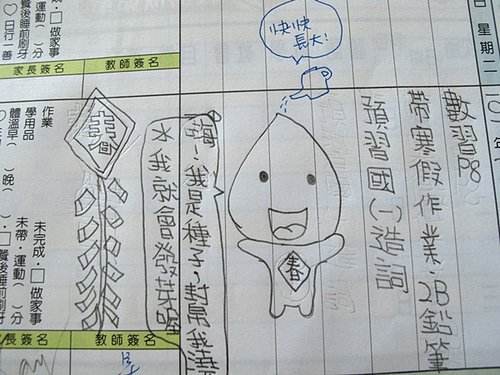 日 星期二
年
數習P8
帶寒假作業.2B鉛筆
預習國(一)造詞
快快
長大!
春
嗨!我是種子,封幫我澆
水我就會發芽喔
春
□做家事
運動( )分
餐後睡前刷牙
日行一善
教師簽名
家長簽名
作業
學用品
體溫早( )晚( )
未完成.□做家事
未帶.運動( )分
□餐後睡前刷牙
教師簽名
長簽名